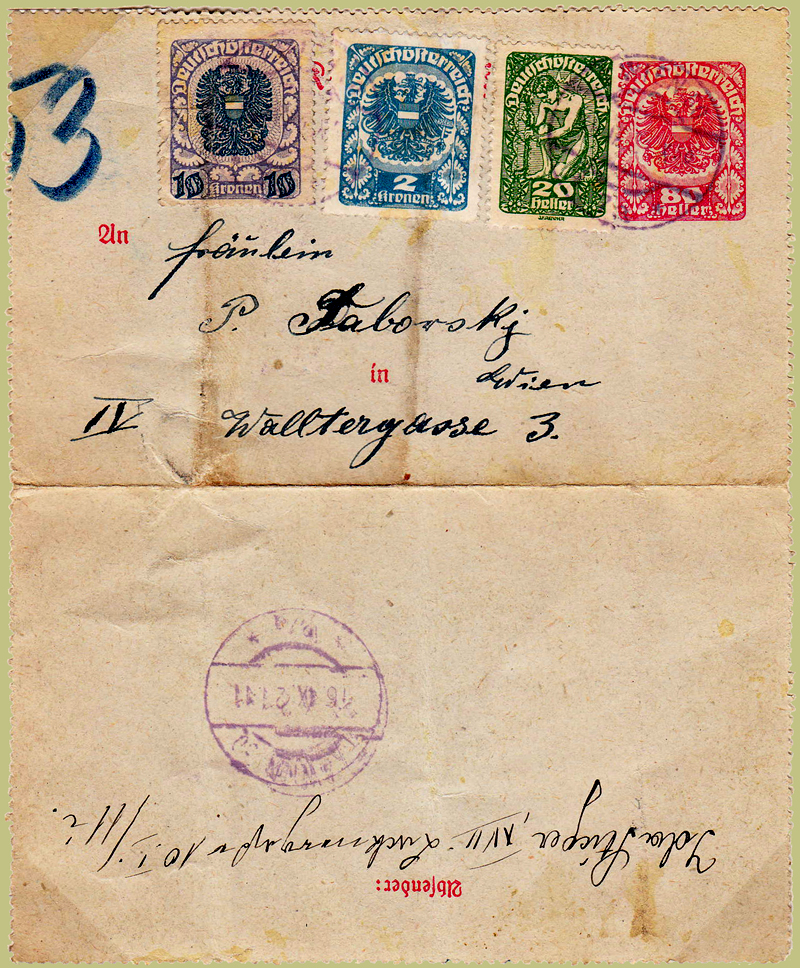 53
Deutschösterreich
10 Kronen 10
Deutschösterreich
2
Kronen
Deutschösterreich
20
Heller
Deutschösterreich
80
Heller
An
Fräulein
P. Taborskÿ
in Wien
IV Walltergasse 3.
WIEN
16 IX 21 11
Absender:
Ida Stieger, XVII